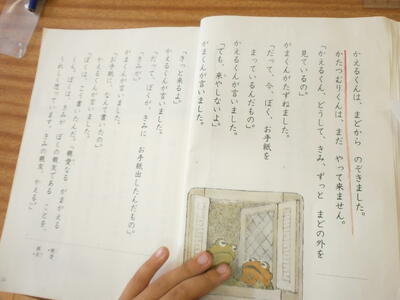 かえるくんは、まどから のぞきました。
かたつむりくんは、まだ やって来ません。
「かえるくん、どうして、きみ、ずっと まどの外を
見ているの。」
がまくんがたずねました。
「だって、今、ぼく、お手紙を
まっているんだもの。」
かえるくんが言いました。
「でも、来やしないよ。」
がまくんが言いました。
「きっと来るよ。」
かえるくんが言いました。
「だって、ぼくが、きみに お手紙出したんだもの。」
「きみが。」
がまくんが言いました。
「お手紙に、なんて書いたの。」
かえるくんが言いました。
「ぼくは、こう書いたんだ。『親愛なる がまがえる
くん。ぼくは、きみが ぼくの親友である ことを、
うれしく思っています。きみの親友、かえる。』」
親愛
親友